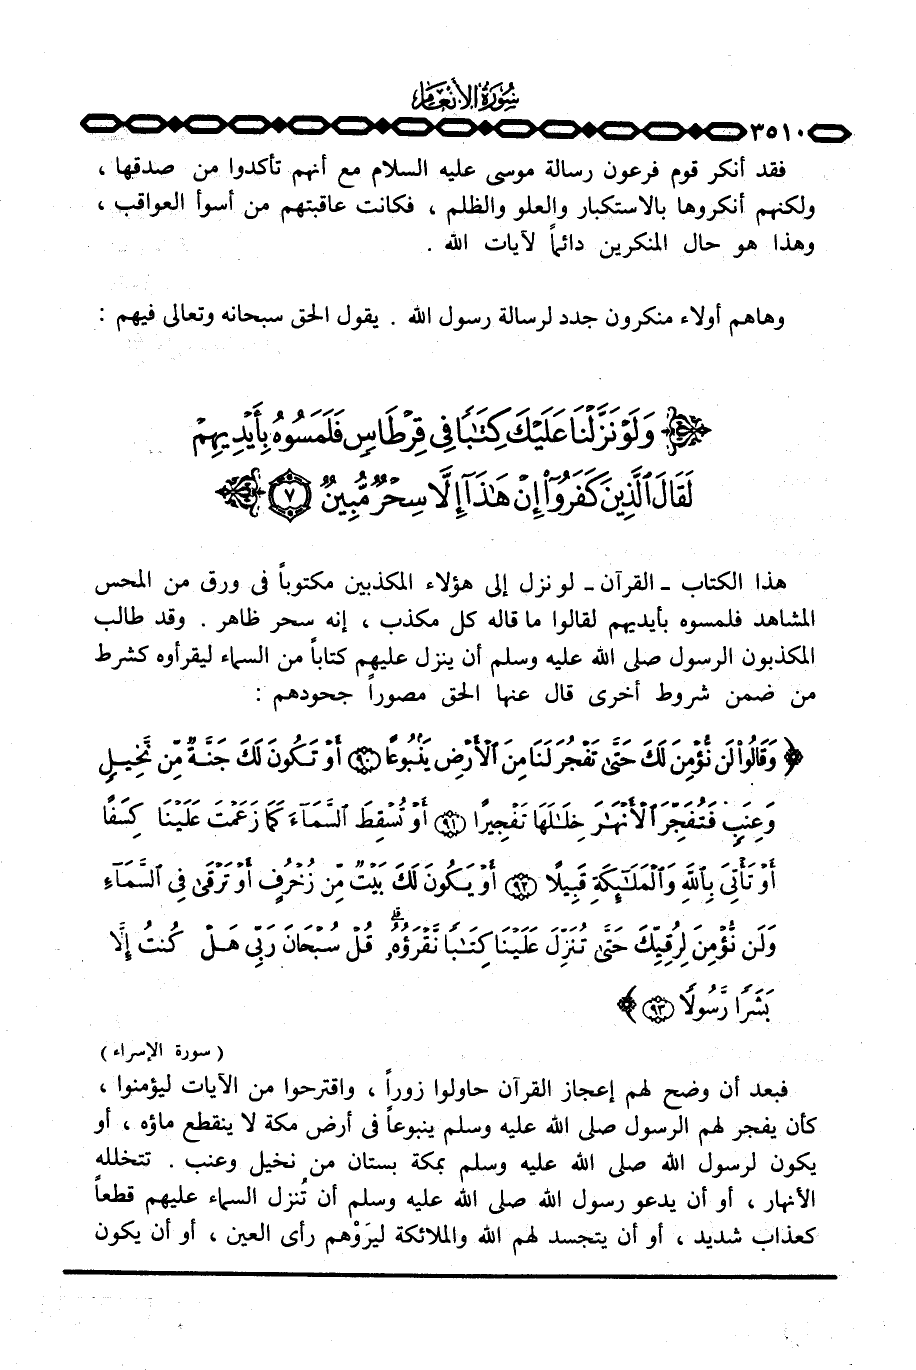 سُورَةُ الأَنْعَام
٣٥١٠
فقد أنكر قوم فرعون رسالة موسى عليه السلام مع أنهم تأكدوا من صدقها ،
ولكنهم أنكروها بالاستكبار والعلو والظلم ، فكانت عاقبتهم من أسوأ العواقب ،
وهذا هو حال المنكرين دائماً لآيات الله .
وهاهم أولاء منكرون جدد لرسالة رسول الله . يقول الحق سبحانه وتعالى فيهم :
وَلَوْ نَزَّلْنَا عَلَيْكَ كِتَٰبًا فِى قِرْطَاسٍ فَلَمَسُوهُ بِأَيْدِيهِمْ
لَقَالَ ٱلَّذِينَ كَفَرُوٓا۟ إِنْ هَٰذَآ إِلَّا سِحْرٌ مُّبِينٌ ﴿٧﴾
هذا الكتاب ـ القرآن ـ لو نزل إلى هؤلاء المكذبين مكتوباً فى ورق من المحس
المشاهد فلمسوه بأيديهم لقالوا ما قاله كل مكذب ، إنه سحر ظاهر . وقد طالب
المكذبون الرسول صلى الله عليه وسلم أن ينزل عليهم كتاباً من السماء ليقرأوه كشرط
من ضمن شروط أخرى قال عنها الحق مصوراً جحودهم :
﴿ وَقَالُوا۟ لَن نُّؤْمِنَ لَكَ حَتَّىٰ تَفْجُرَ لَنَا مِنَ ٱلْأَرْضِ يَنۢبُوعًا (٩٠) أَوْ تَكُونَ لَكَ جَنَّةٌ مِّن نَّخِيلٍ
وَعِنَبٍ فَتُفَجِّرَ ٱلْأَنْهَٰرَ خِلَٰلَهَا تَفْجِيرًا (٩١) أَوْ تُسْقِطَ ٱلسَّمَآءَ كَمَا زَعَمْتَ عَلَيْنَا كِسَفًا
أَوْ تَأْتِىَ بِٱللَّهِ وَٱلْمَلَٰٓئِكَةِ قَبِيلًا (٩٢) أَوْ يَكُونَ لَكَ بَيْتٌ مِّن زُخْرُفٍ أَوْ تَرْقَىٰ فِى ٱلسَّمَآءِ
وَلَن نُّؤْمِنَ لِرُقِيِّكَ حَتَّىٰ تُنَزِّلَ عَلَيْنَا كِتَٰبًا نَّقْرَؤُهُۥ ۗ قُلْ سُبْحَانَ رَبِّى هَلْ كُنتُ إِلَّا
بَشَرًا رَّسُولًا (٩٣) ﴾
( سورة الإسراء )
فبعد أن وضح لهم إعجاز القرآن حاولوا زوراً ، واقترحوا من الآيات ليؤمنوا ،
كأن يفجر لهم الرسول صلى الله عليه وسلم ينبوعاً فى أرض مكة لا ينقطع ماؤه ، أو
يكون لرسول الله صلى الله عليه وسلم بمكة بستان من نخيل وعنب . تتخلله
الأنهار ، أو أن يدعو رسول الله صلى الله عليه وسلم أن تُنزل السماء عليهم قطعاً
كعذاب شديد ، أو أن يتجسد لهم الله والملائكة ليرَوْهم رأى العين ، أو أن يكون